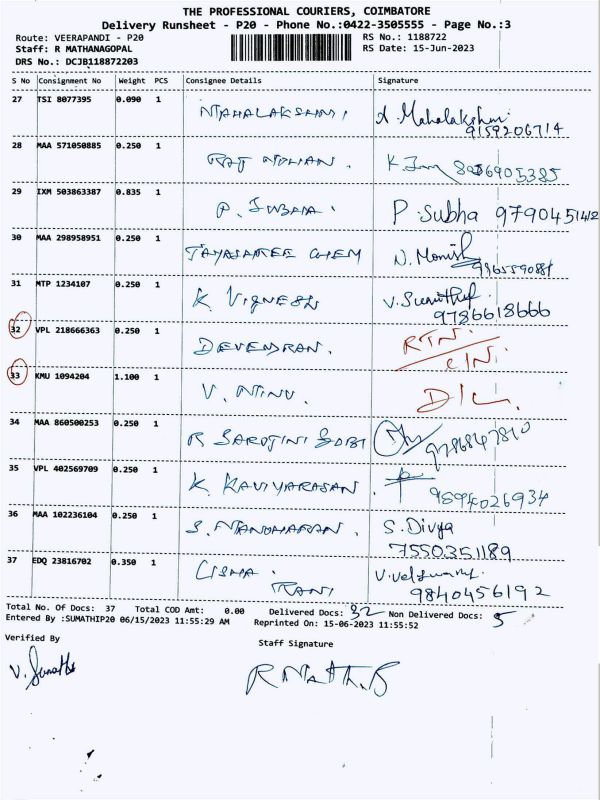 THE PROFESSIONAL COURIERS, COIMBATORE
Delivery Runsheet - P20 - Phone No.:0422-3505555 - Page No.:3
Route: VEERAPANDI - P20 RS No.: 1188722
Staff: R MATHANAGOPAL RS Date: 15-Jun-2023
DRS No.: DCJB118872203
S No Consignment No Weight PCS Consignee Details Signature
27 TSI 8077395 0.090 1 MAHALAKSHMI A. Mahalakshmi
9159206714
28 MAA 571050885 0.250 1 RAJ MOHAN . K. 8056905385
29 IXM 503863387 0.835 1 P. SUBHA . P. Subha 9790451412
30 MAA 298958951 0.250 1 JAYASAKEE CHEM N. Monish
31 MTP 1234107 0.250 1 K VIGNESH V. Sumathi
9786618666
32 VPL 218666363 0.250 1 DEVENDRAN. RTN.
C/N.
33 KMU 1094204 1.100 1 V. NINU. D/L.
34 MAA 860500253 0.250 1 R SAROJINI DEVI 9786847810
35 VPL 402569709 0.250 1 K. KAVIYARASAN . 9894026934
36 MAA 102236104 0.250 1 S. MANOHARAN . S. Divya
7550351189
37 EDQ 23816702 0.350 1 LISHA . V. Velswamy.
RANI 9840456192
Total No. Of Docs: 37 Total COD Amt: 0.00 Delivered Docs: 32 Non Delivered Docs: 5
Entered By :SUMATHIP20 06/15/2023 11:55:29 AM Reprinted On: 15-06-2023 11:55:52
Verified By Staff Signature
V. Sumathi